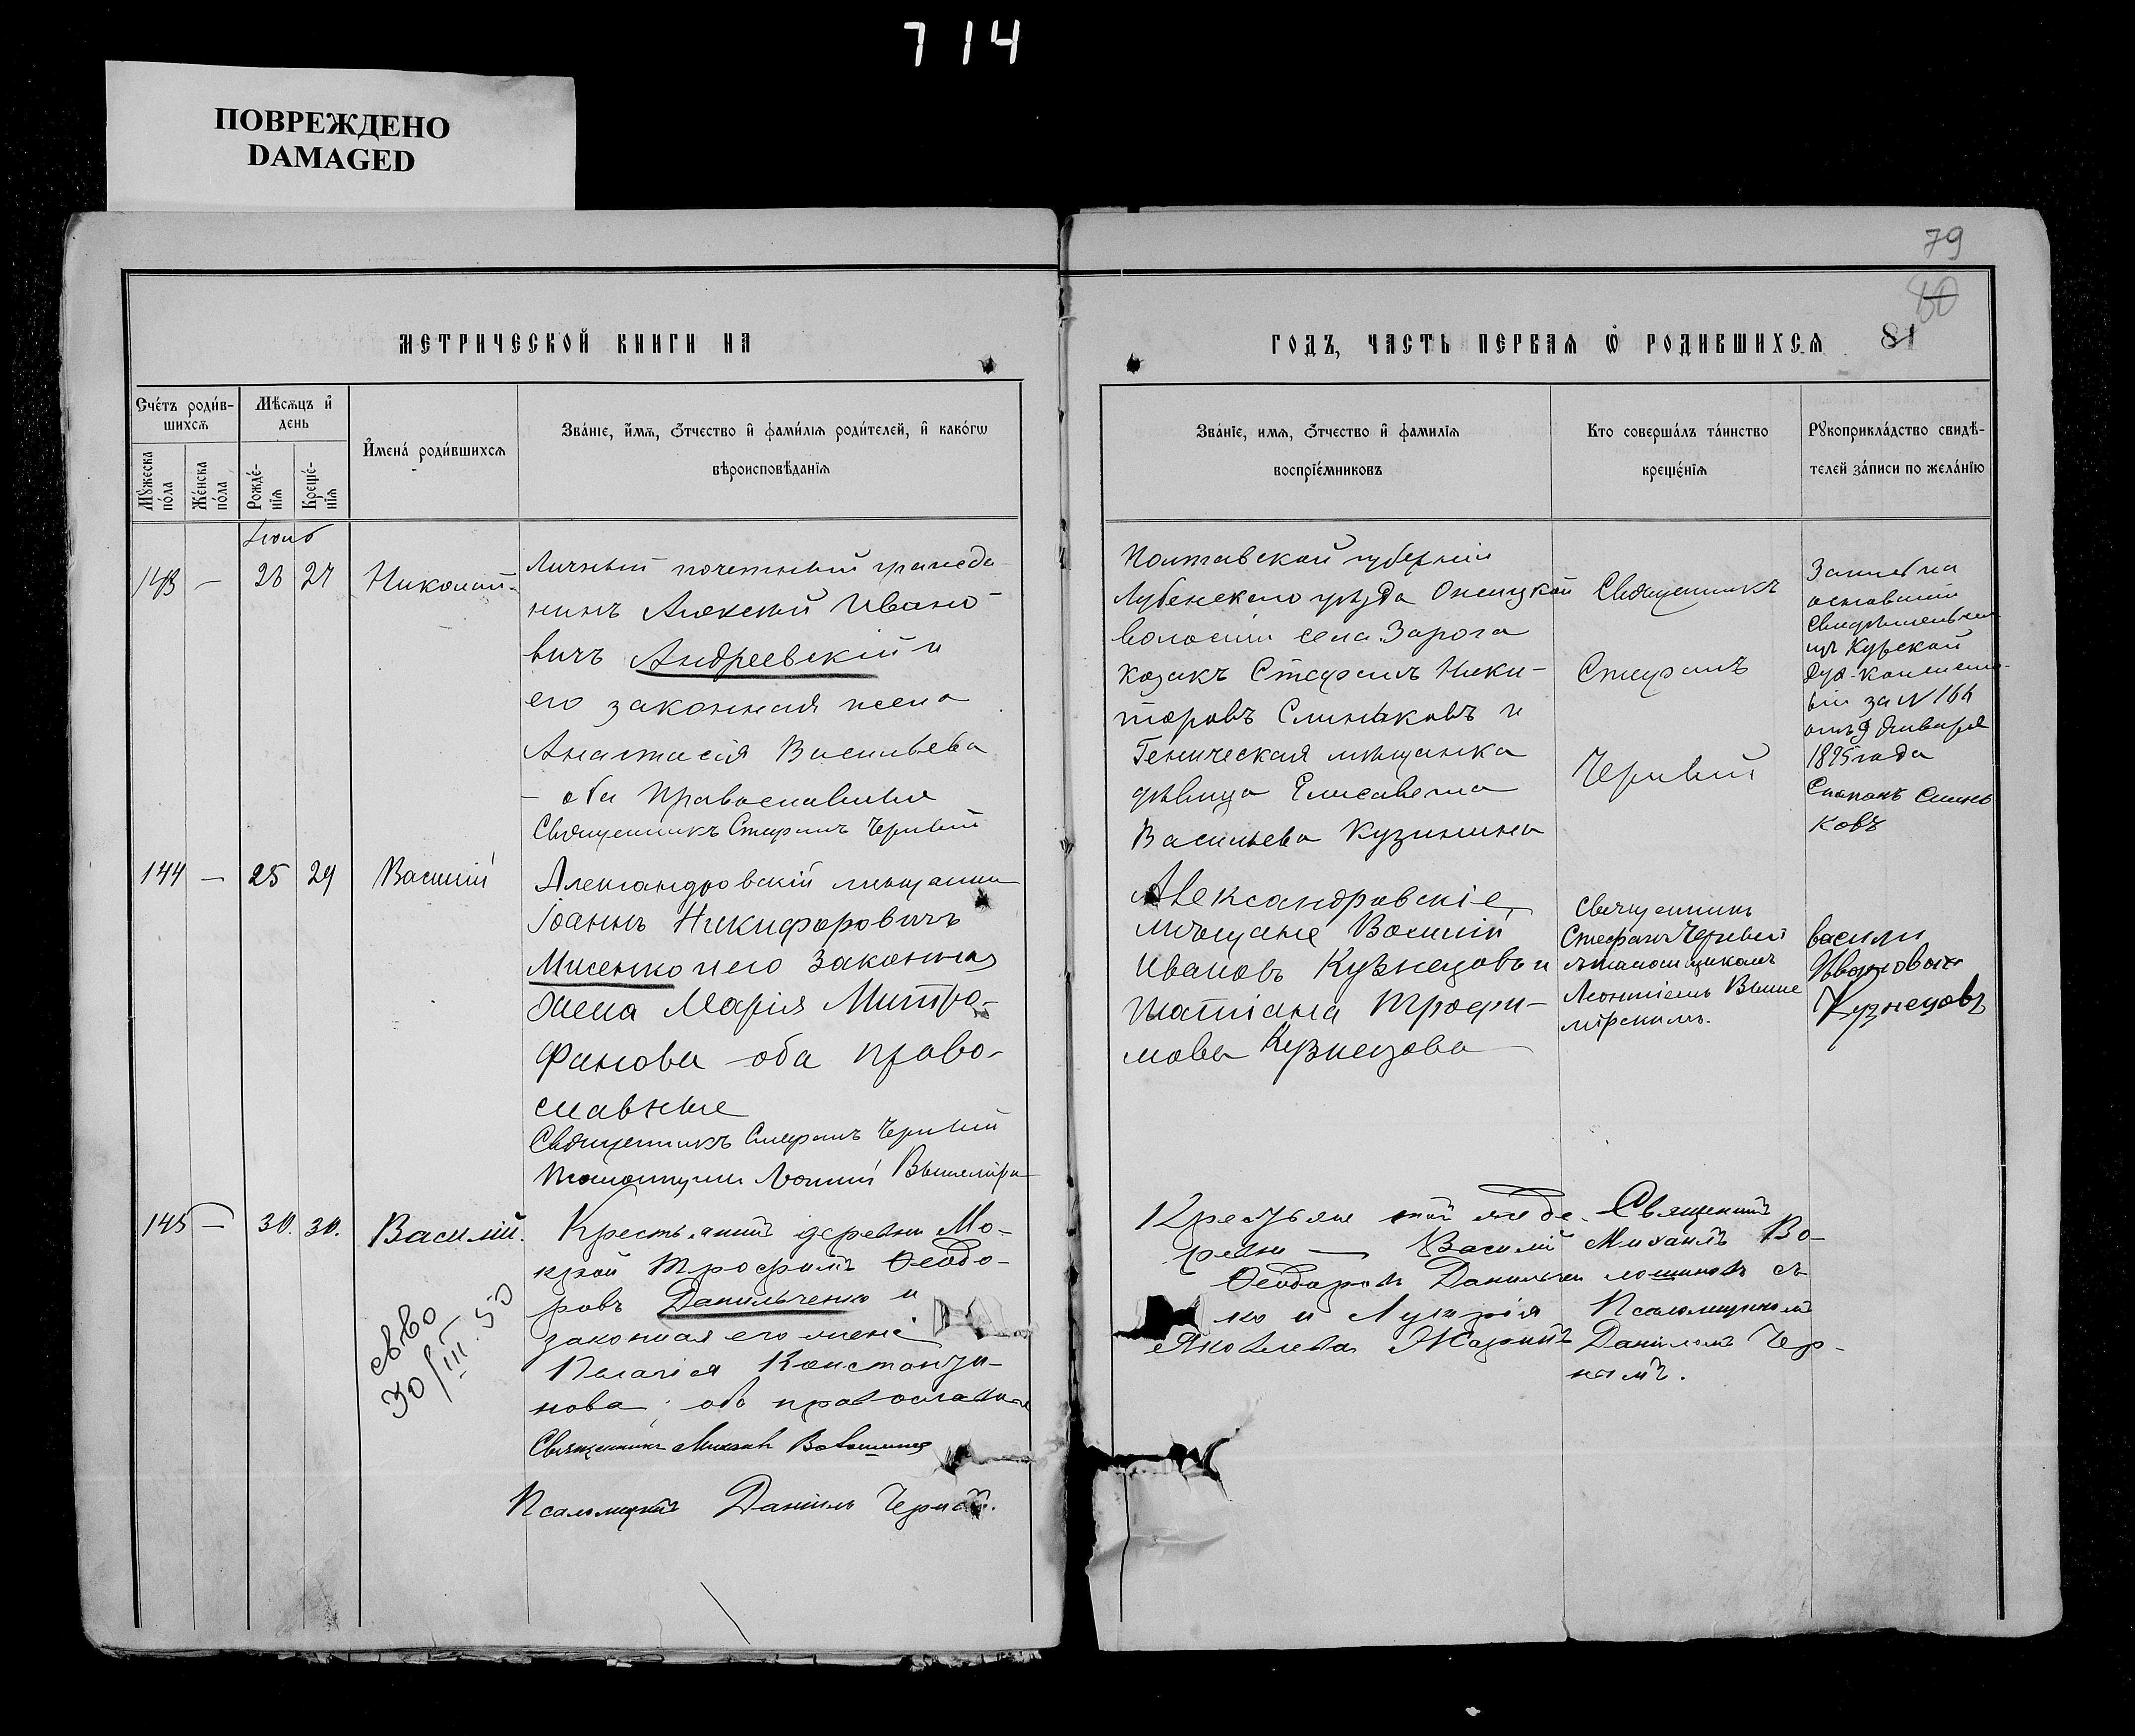 714
ПОВРЕЖДЕНО
DAMAGED
79
80
81
МЕТРИЧЕСКОЙ КНИГИ НА
ГОДЪ, ЧАСТЬ ПЕРВАЯ Ѿ РОДИВШИХСЯ
Счетъ родив-
шихся
Мѣсяцъ и
день
Мужеска
пола
Женска
пола
Рожде-
нія
Креще-
нія
Имена родившихся
Званіе, имя, отчество и фамилія родителей, и какогѡ
вѣроисповѣданія
Званіе, имя, отчество и фамилія
воспріемниковъ
Кто совершалъ таинство
крещенія
Рукоприкладство свидѣ-
телей записи по желанію
143 — 26 27 Николай
Личный почетный гражда
нинъ Алексій Ивано
вичъ Андреевскій и
его законная жена
Анастасія Васильева
— оба православные
Священникъ Стефанъ Черный
Полтавской губерніи
Лубенскаго уѣзда Онишкой
волости села Зарога
козакъ Стефанъ Ники-
форовъ Слиньковъ и
Геническая мѣщанка
дѣвица Елисавета
Васильева Кузинина
Священникъ
Стефанъ
Черный
основаніи
Курской
Дух. Консисто-
ріи за № 166
отъ 9 Января
1895 года
Слинь
ковъ
144 — 25 29 Василій
Александровскій мѣщанин
Іоаннъ Никифоровичъ
Мисенко и его законная
жена Марія Митро-
фанова оба право-
славные
Священникъ Стефанъ Черный
Александровскіе
мѣщане Василій
Ивановъ Кузнецовъ и
Татіана Трофи-
мова Кузнецова
Священник
Стефанъ Черный
Леонтіемъ Выше
мірскимъ.
васили
Ивановъ
Кузнецовъ
145 — 30. 30. Василій.
30/III.50
Крестьянинъ деревни Мо-
крой Трофимъ Ѳеодо-
ровъ Данильченко и
законная его жена
Пелагія Константи-
нова; оба православные
Священникъ Михаилъ Волошинов
Псаломщикъ Даніилъ Черный.
Крестьяне той же де-
ревни — Василій
Ѳеодоровъ Данильчен
ко и Лукерія
Яковлева
Священникъ
Михаилъ Во-
лошиновъ съ
Псаломщикомъ
Даніиломъ Чер-
нымъ.